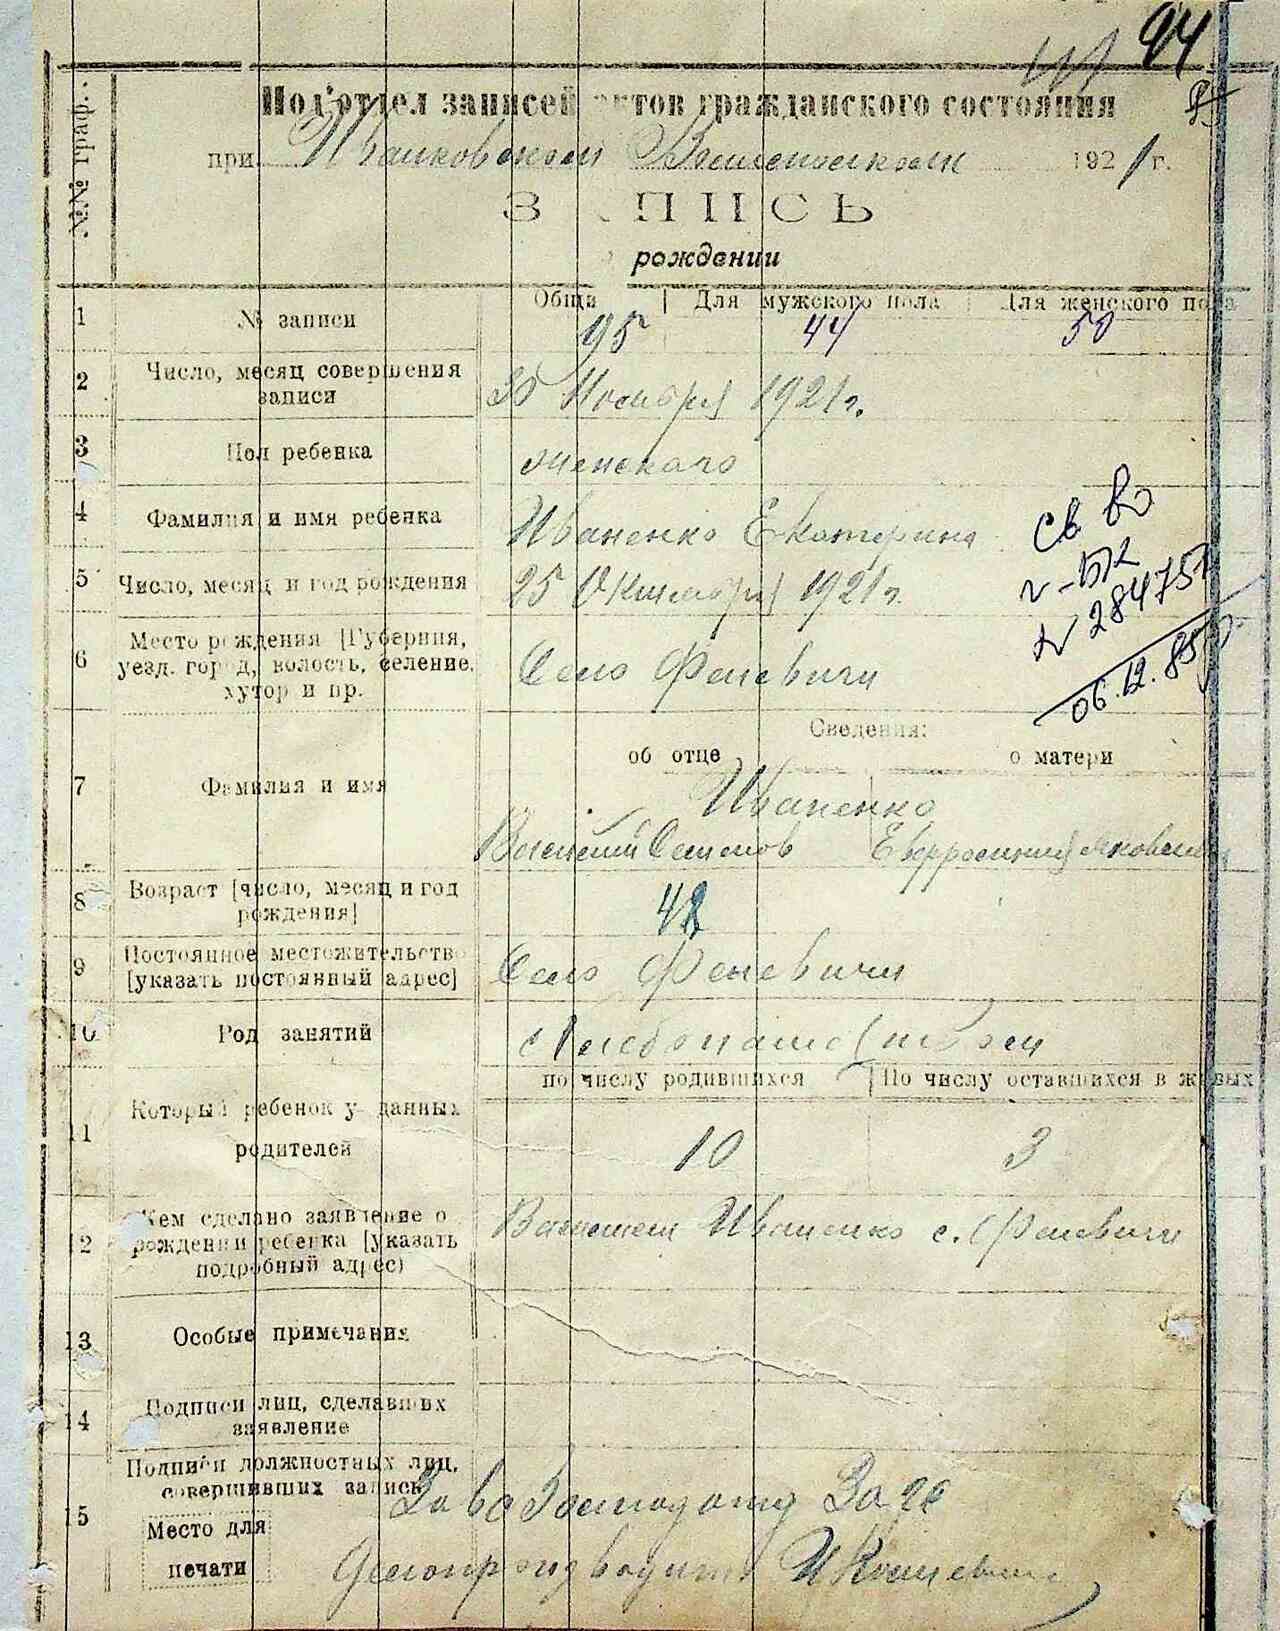 94
№№ граф.
Под'отдел записей актов гражданского состояния
при Иванковском Волисполкоме 1921 г.
ЗАПИСЬ
рождении
1 № записи Общая 95 Для мужского пола 44 Для женского пола 50
2 Число, месяц совершения записи 30 Ноября 1921 г.
3 Пол ребенка женского
4 Фамилия и имя ребенка Иваненко Екатерина
св во
№ 284757
06.12.85
5 Число, месяц и год рождения 25 Октября 1921 г.
6 Место рождения [Губерния,
уезд. город, волость, селение,
хутор и пр.
Село Феневичи
Сведения:
об отце о матери
7 Фамилия и имя Иваненко
Василий Семенов Евфросиния Яковлева
8 Возраст [число, месяц и год
рождения] 42
9 Постоянное местожительство
[указать постоянный адрес] Село Феневичи
10 Род занятий Хлебопашеством
по числу родившихся По числу оставшихся в живых
11 Который ребенок у данных
родителей 10 3
12 Кем сделано заявление о
рождении ребенка [указать
подробный адрес)
Иваненко с. Феневичи
13 Особые примечания
14 Подписи лиц, сделавших
заявление
15 Подписи должностных лиц,
совершивших запись
Место для
печати
Делопроизводит